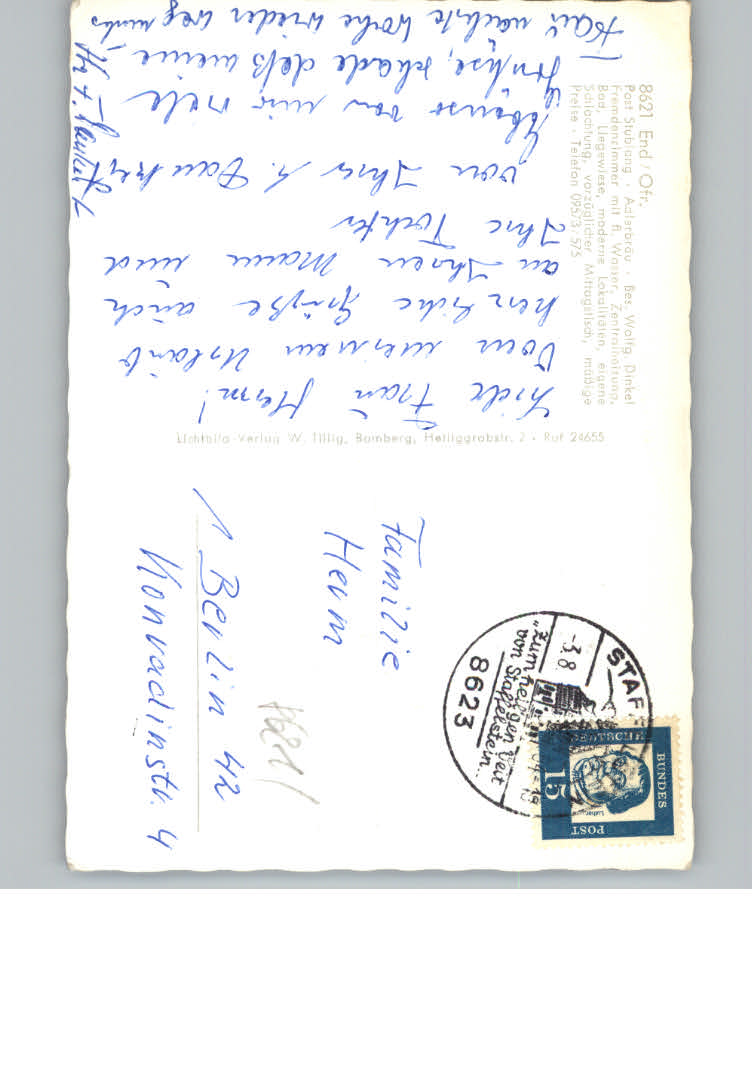 8621 End / Ofr.
Post Stublang · Adlerbräu · Bes. Wolfg. Dinkel
Fremdenzimmer mit fl. Wasser, Zentralheizung,
Bad, Liegewiese, moderne Lokalitäten, eigene
Schlachtung, vorzüglicher Mittagstisch, mäßige
Preise · Telefon 09573/575
Liebe Frau Herm!
Vom meinem Urlaub
herzliche Grüße auch
an Ihren Mann und
Ihre Tochter
von Ihrer
Ebenso von mir viele
Grüße, schade daß meine
Frau nächste Woche wieder weg muß
Lichtbild-Verlag W. Tillig, Bamberg, Heiliggrabstr. 2 · Ruf 24655
Familie
Herm
1 Berlin 42
Konradinstr. 4
STAF
-3.8.
"Zum heiligen Veit
von Staffelstein...
8623
DEUTSCHE
BUNDES
POST
15
Luther